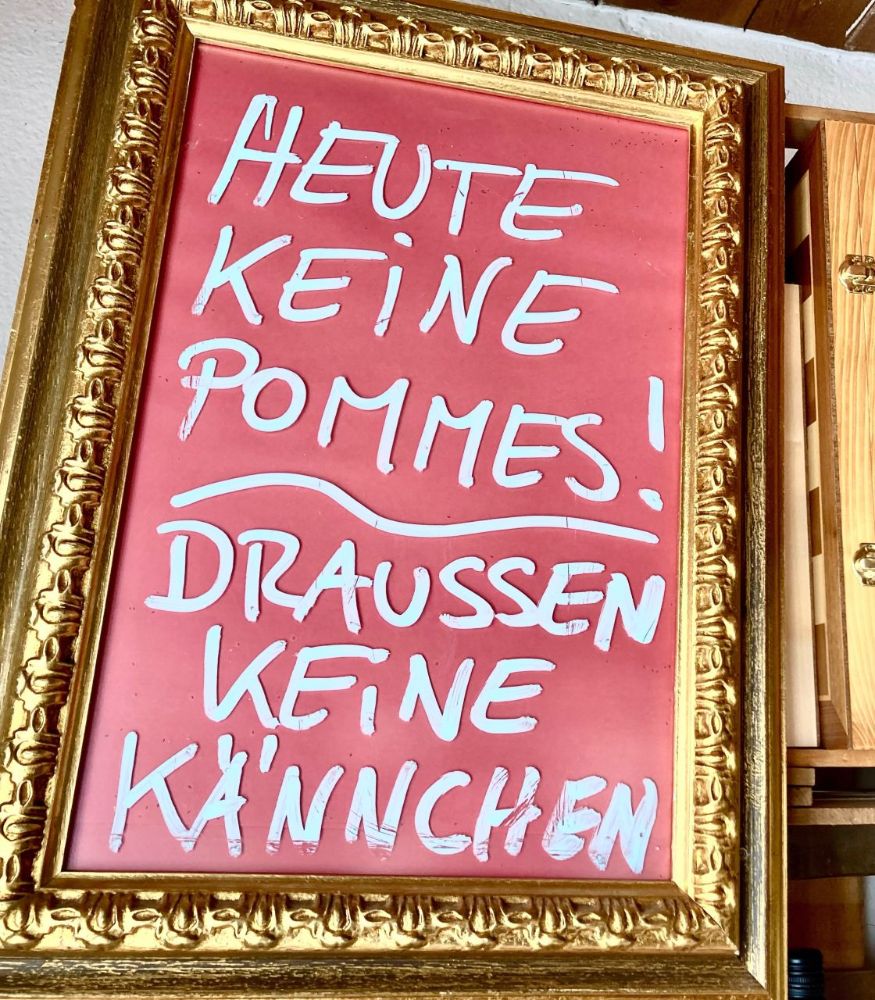 HEUTE
KEINE
POMMES!
DRAUSSEN
KEINE
KÄNNCHEN